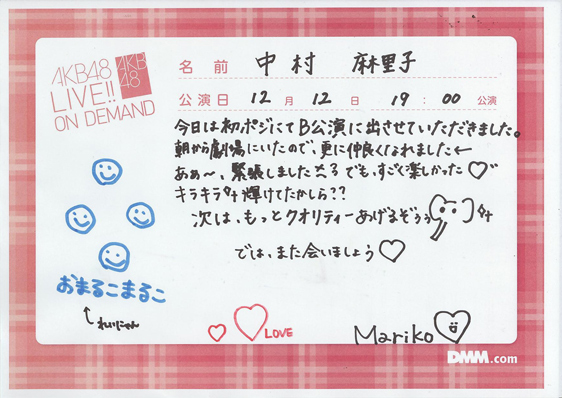 AKB48
LIVE!!
ON DEMAND
AKB
48
名前 中村 麻里子
公演日 12月 12日 19:00 公演
今日は初ポジにてB公演に出させていただきました。
朝から劇場にいたので、更に仲良くなれました←
あぁ〜、緊張しました でも、すごく楽しかった♡
キラキラ 輝けてたかしら??
次は、もっとクオリティーあげるぞぅぅ
では、また会いましょう♡
おまるこまるこ
れいにゃん
LOVE
Mariko
DMM.com